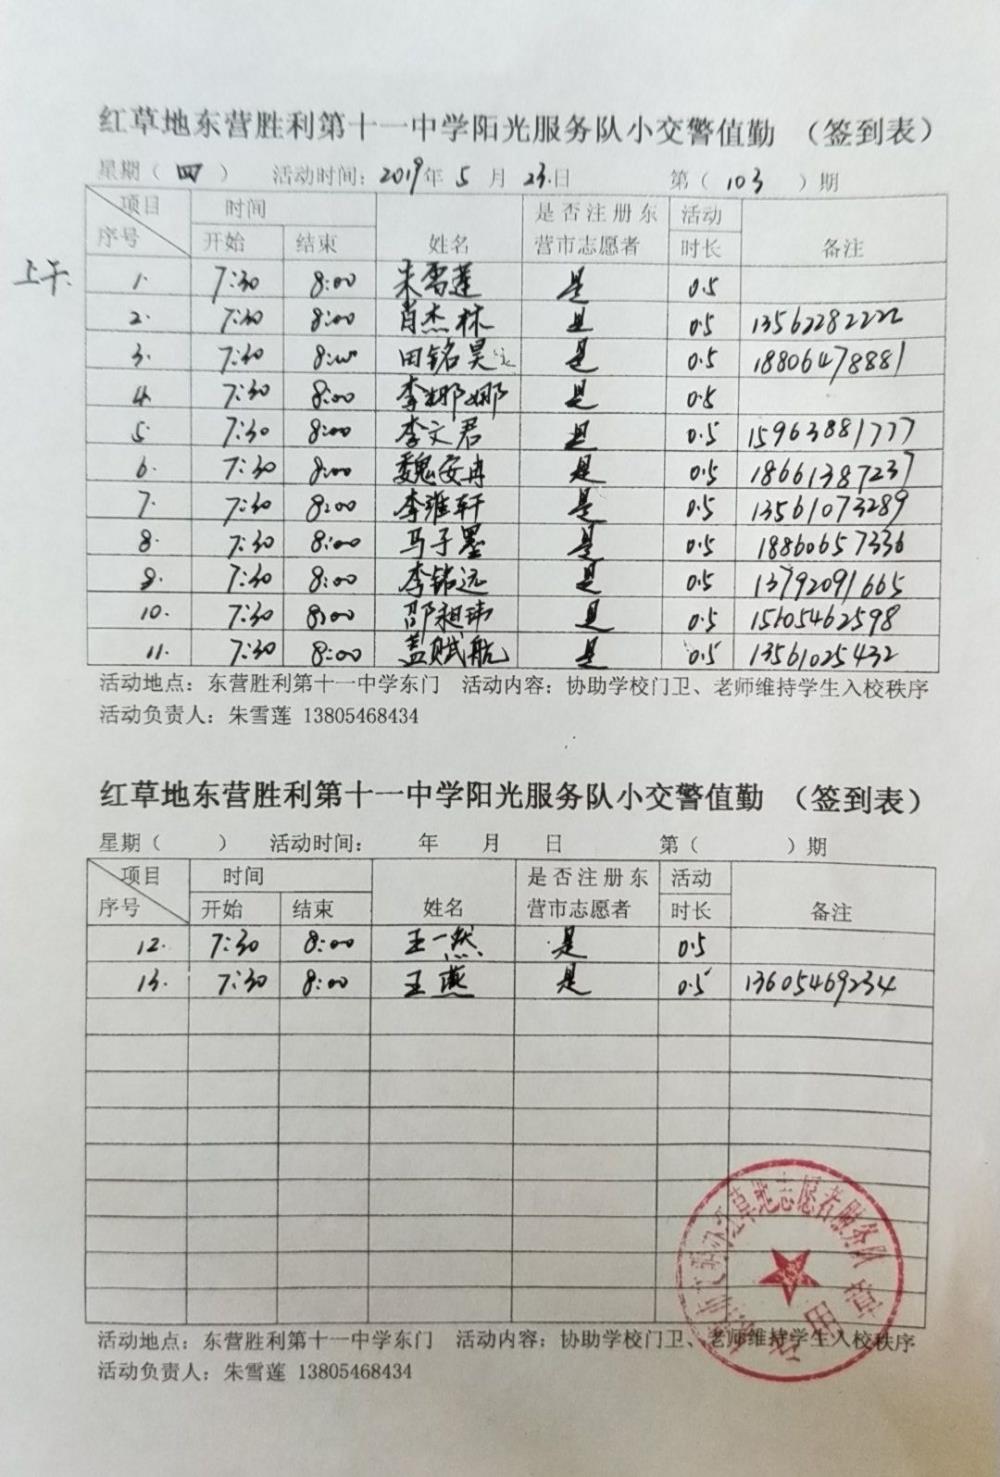 红草地东营胜利第十一中学阳光服务队小交警值勤 （签到表）
星期（ 四 ） 活动时间：2019年 5 月 23.日 第（ 103 ）期
项目 时间 是否注册东 活动
序号 开始 结束 姓名 营市志愿者 时长 备注
上午.
1. 7:30 8:00 朱雪莲 是 0.5
2. 7:30 8:00 肖杰林 是 0.5 13562282222
3. 7:30 8:00 田铭昊 是 0.5 18806478881
4. 7:30 8:00 李娜娜 是 0.5
5. 7:30 8:00 李文君 是 0.5 15963881777
6. 7:30 8:00 魏安冉 是 0.5 18661387237
7. 7:30 8:00 李维轩 是 0.5 13561073289
8. 7:30 8:00 马子墨 是 0.5 18860657336
9. 7:30 8:00 李锦远 是 0.5 13792091665
10. 7:30 8:00 邵昶玮 是 0.5 15605462598
11. 7:30 8:00 盖赋航 是 0.5 13561025432
活动地点：东营胜利第十一中学东门 活动内容：协助学校门卫、老师维持学生入校秩序
活动负责人：朱雪莲 13805468434
红草地东营胜利第十一中学阳光服务队小交警值勤 （签到表）
星期（ ） 活动时间： 年 月 日 第（ ）期
项目 时间 是否注册东 活动
序号 开始 结束 姓名 营市志愿者 时长 备注
12. 7:30 8:00 王一然 是 0.5
13. 7:30 8:00 王燕 是 0.5 13605469234
红草地志愿者服务队
专用章
活动地点：东营胜利第十一中学东门 活动内容：协助学校门卫、老师维持学生入校秩序
活动负责人：朱雪莲 13805468434